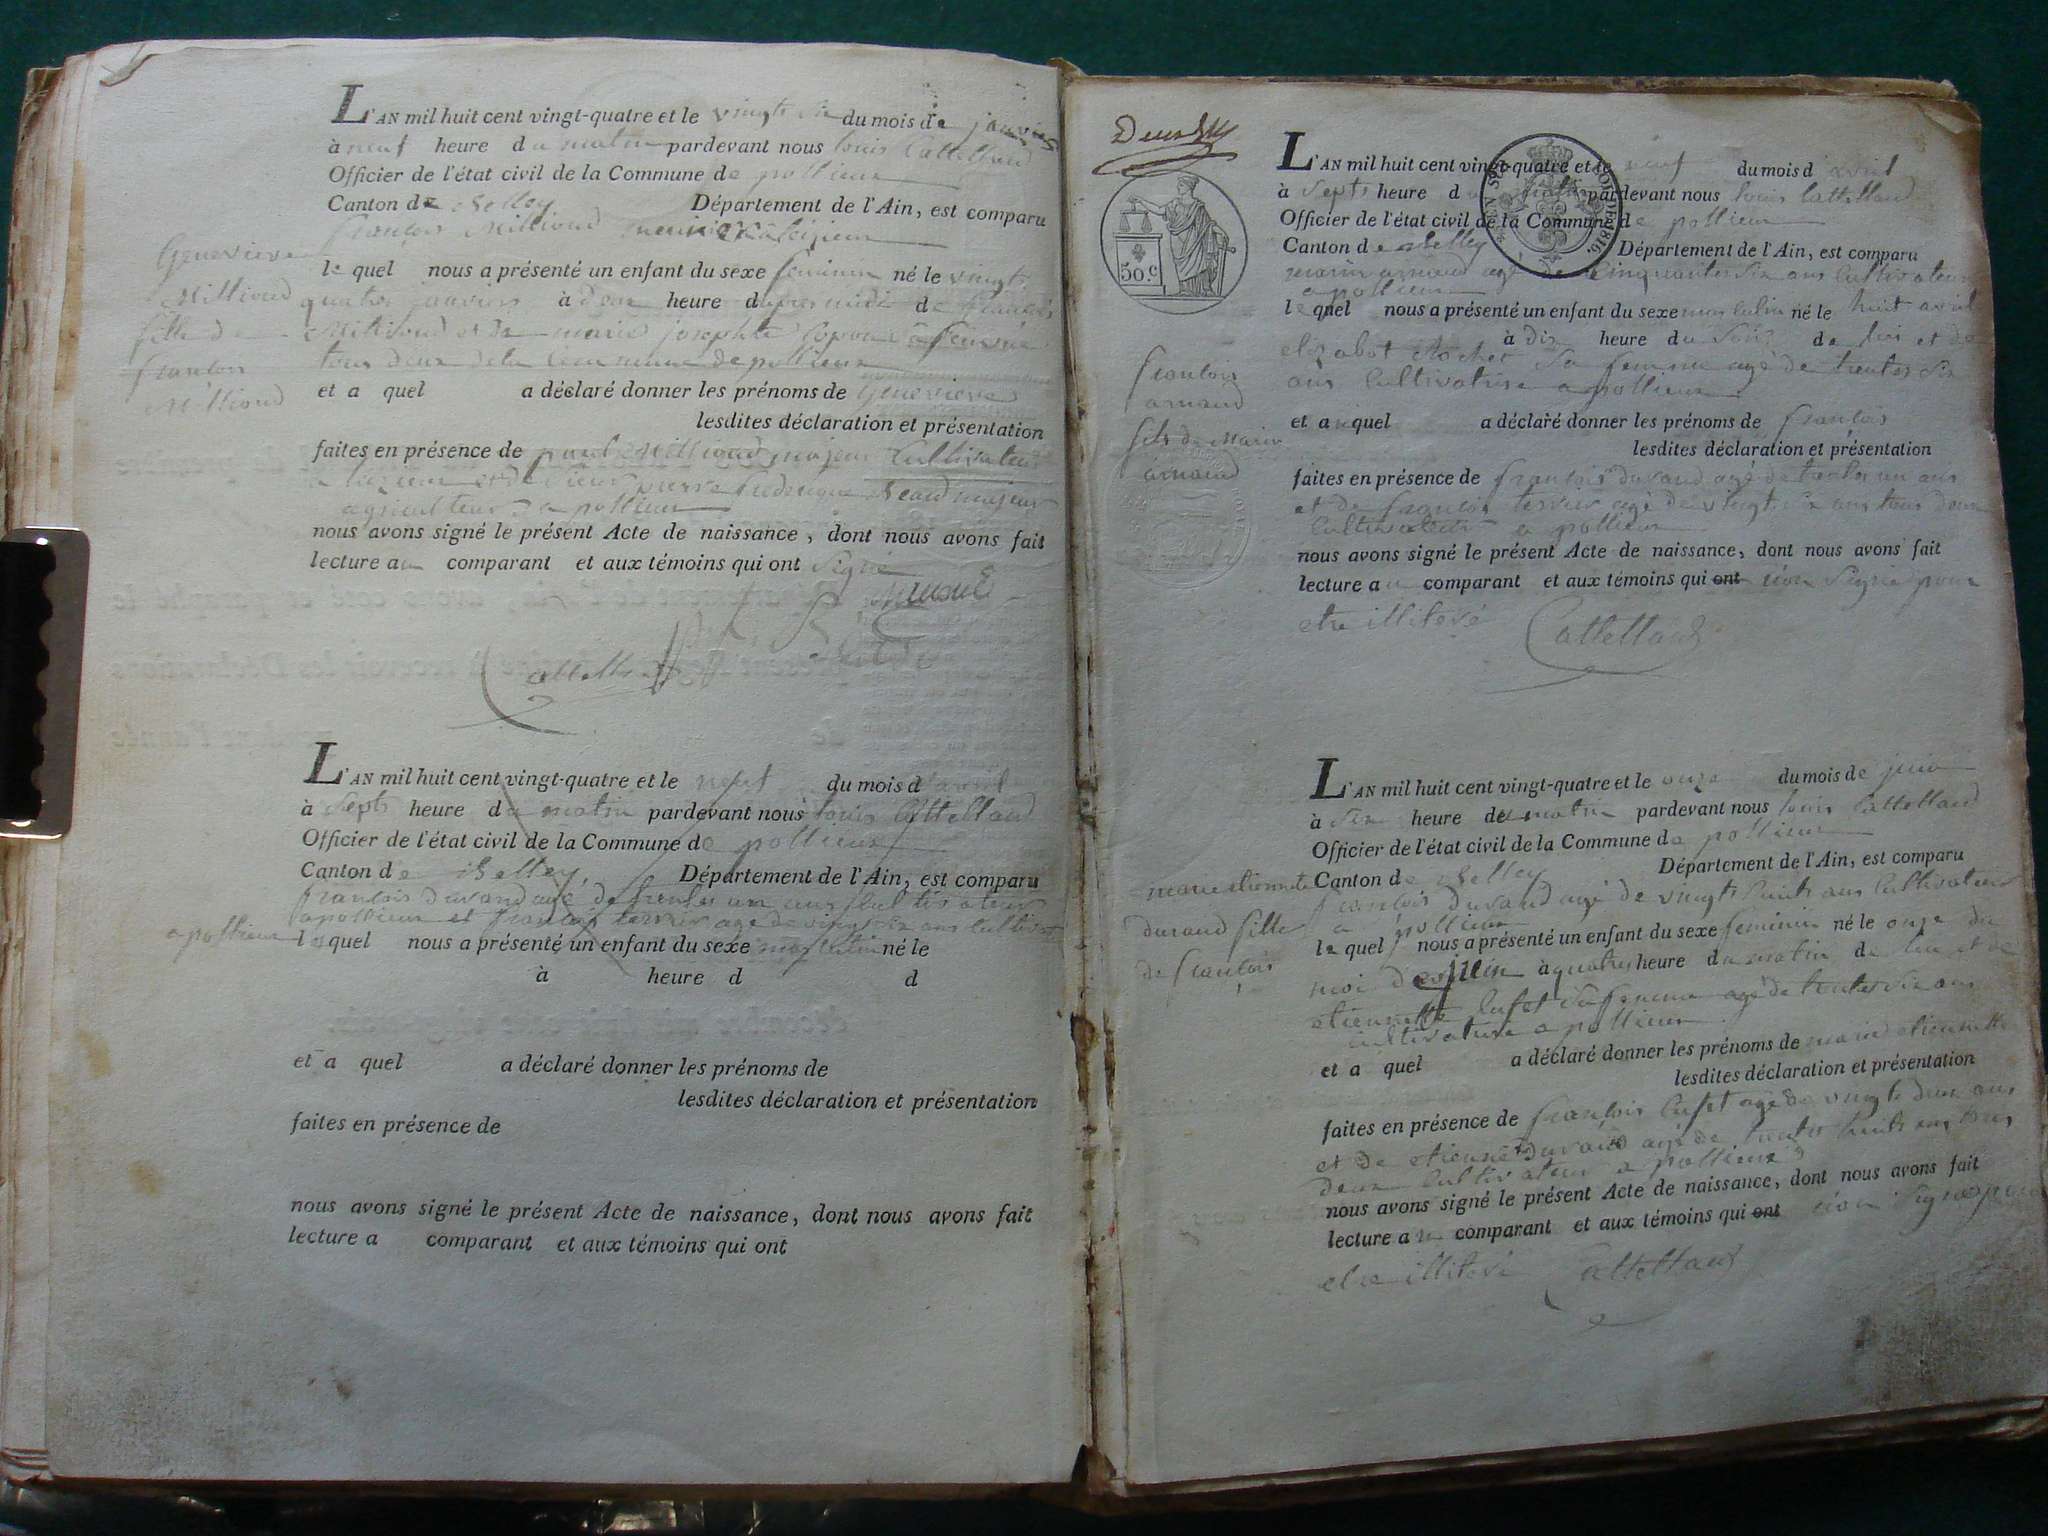 L'AN mil huit cent vingt-quatre et le vingt six du mois de janvier
à neuf heure du matin pardevant nous louis Cattelland
Officier de l'état civil de la Commune de pollieux
Canton de Belley Département de l'Ain, est comparu
françois Millioud
le quel nous a présenté un enfant du sexe feminin né le vingt
quatre janviers à deux heure d de francois
Millioud et de marie josephte
tous deux de la Commune de pollieux
et a quel a déclaré donner les prénoms de Genevieve
lesdites déclaration et présentation
faites en présence de paul Millioud majeur Cultivateur
a et de sieur pierre frederique majeur
agriculteur a pollieux
nous avons signé le présent Acte de naissance, dont nous avons fait
lecture au comparant et aux témoins qui ont signé
Cattelland
Genevieve
Millioud
fille de
francois
Millioud
L'AN mil huit cent vingt-quatre et le neuf du mois d'avril
à septs heure du matin pardevant nous louis Cattelland
Officier de l'état civil de la Commune de pollieux
Canton de Belley Département de l'Ain, est comparu
francois durand agé de trentes un ans Cultivateur
a pollieux et francois terrier agé de vingt six ans Cultivat
a pollieux
les quel nous a présenté un enfant du sexe masculin né le
à heure d d
et a quel a déclaré donner les prénoms de
lesdites déclaration et présentation
faites en présence de
nous avons signé le présent Acte de naissance, dont nous avons fait
lecture a comparant et aux témoins qui ont
50 c
L'AN mil huit cent vingt-quatre et le neuf du mois d avril
à septs heure du matin pardevant nous louis Cattelland
Officier de l'état civil de la Commune de pollieux
Canton de Belley Département de l'Ain, est comparu
marin arnaud agé de Cinquantes six ans Cultivateur
a pollieux
le quel nous a présenté un enfant du sexe masculin né le huit avril
à dix heure du soir de lui et de
elizabet Rochet sa femme agé de trentes six
ans Cultivatrise a pollieux
et a quel a déclaré donner les prénoms de françois
lesdites déclaration et présentation
faites en présence de françois durand agé de trentes un ans
et de françois terrier agé de vingt six ans tous deux
Cultivateur a pollieux
nous avons signé le présent Acte de naissance, dont nous avons fait
lecture au comparant et aux témoins qui ont non signé pour
etre illiteré Cattelland
francois
arnaud
fils de Marin
arnaud
L'AN mil huit cent vingt-quatre et le onze du mois de juin
à six heure du matin pardevant nous louis Cattelland
Officier de l'état civil de la Commune de pollieux
Canton de Belley Département de l'Ain, est comparu
francois durand agé de vingts huits ans Cultivateur
a pollieux
le quel nous a présenté un enfant du sexe feminin né le onze du
moi de juin à quatres heure du matin de lui et de
etiennette Cufet sa femme agé de trentes six ans
cultivatrise a pollieux
et a quel a déclaré donner les prénoms de marie etiennette
lesdites déclaration et présentation
faites en présence de francois Cufet agé de vingts deux ans
et de etienne durand agé de trentes huits ans tous
deux Cultivateur a pollieux
nous avons signé le présent Acte de naissance, dont nous avons fait
lecture au comparant et aux témoins qui ont non signé pour
etre illiteré Cattelland
marie etiennette
durand fille
de françois